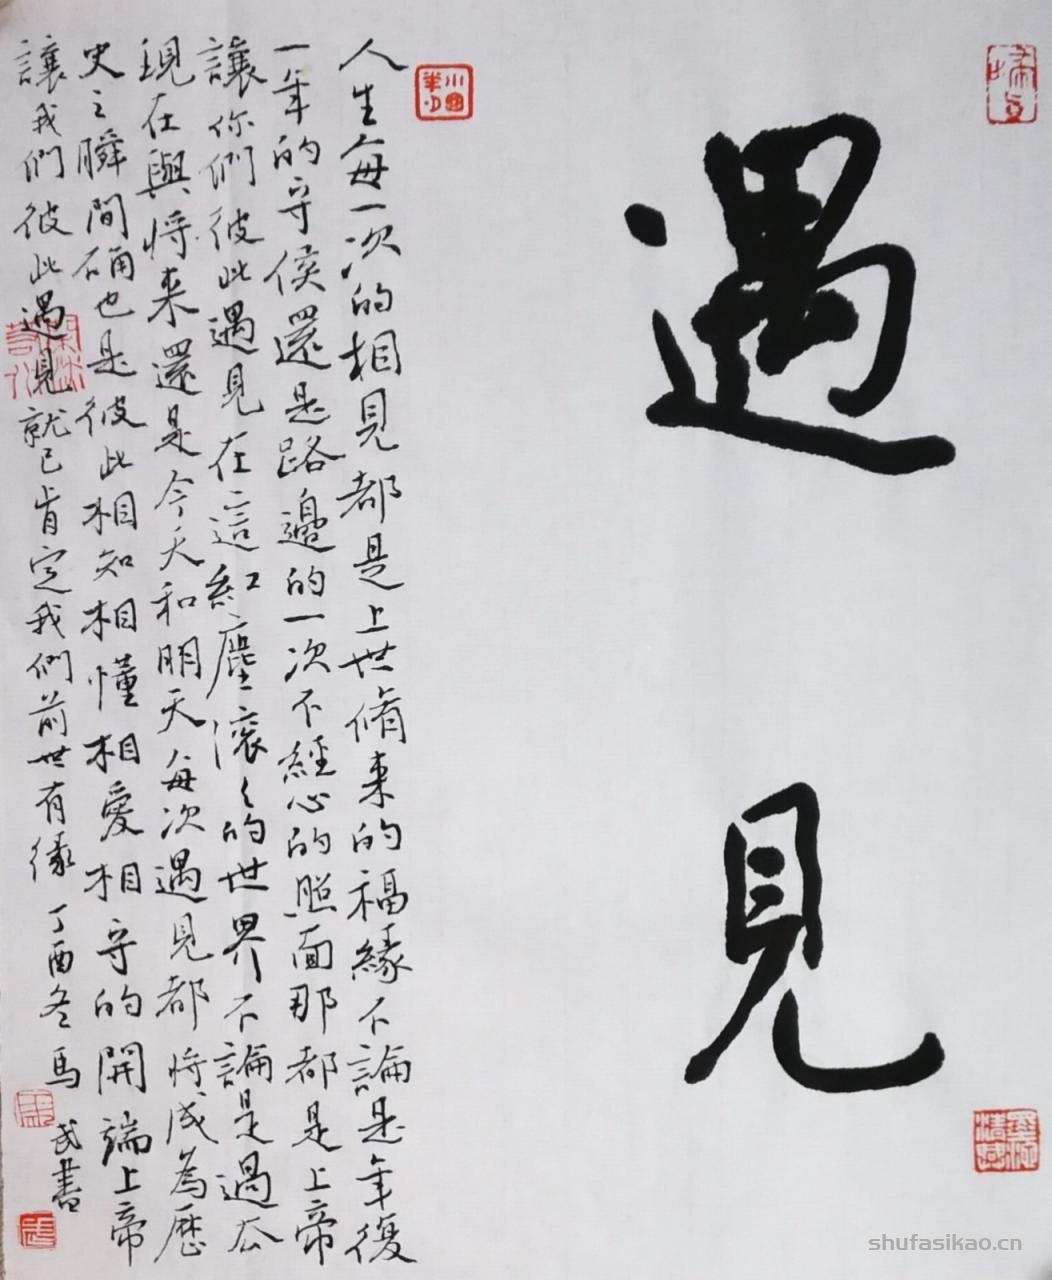 遇見
人生每一次的相見都是上世脩来的福緣不論是年復
一年的守侯還是路邊的一次不經心的照面那都是上帝
讓你們彼此遇見在這紅塵滚々的世界不論是過厺
現在與将来還是今天和明天每次遇見都将成為歷
史之瞬間确也是彼此相知相懂相愛相守的開端上帝
讓我們彼此遇見就已肯定我們前世有缘 丁酉冬馬
武書
shufasikao.cn